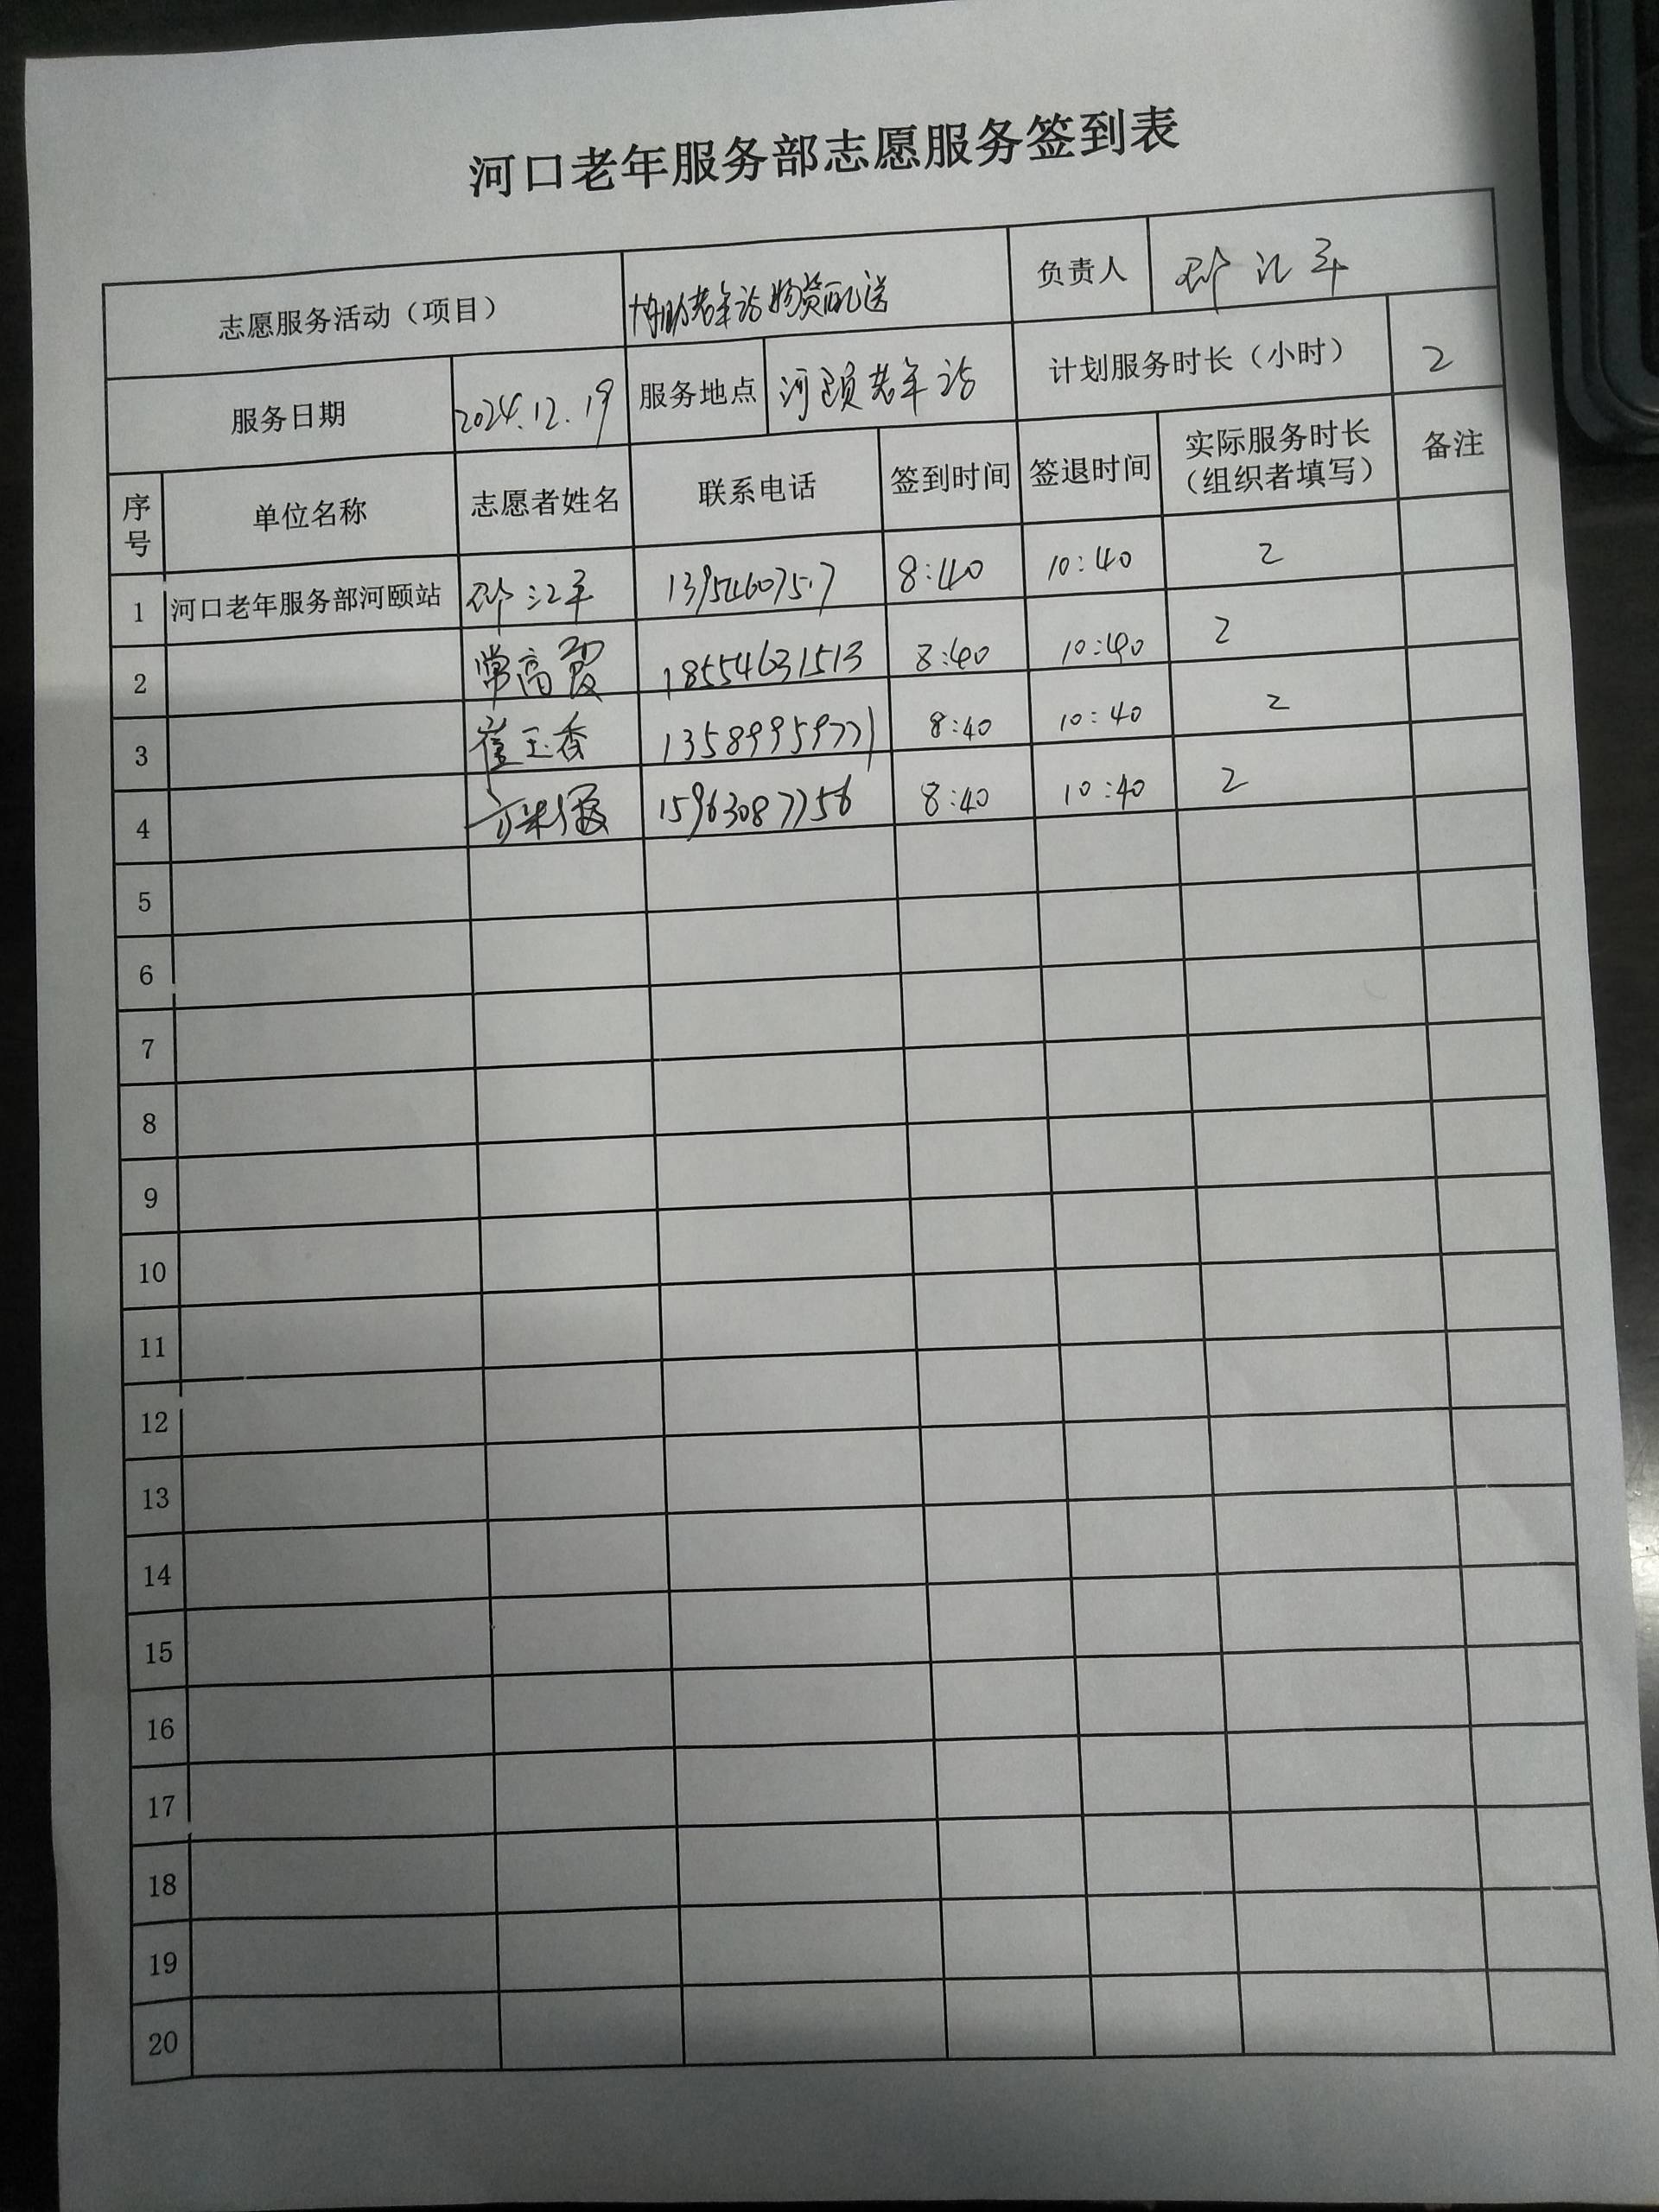 河口老年服务部志愿服务签到表
志愿服务活动（项目） 协助老年站物资配送 负责人
服务日期 2024.12.19 服务地点 河颐老年站 计划服务时长（小时） 2
序号 单位名称 志愿者姓名 联系电话 签到时间 签退时间 实际服务时长（组织者填写） 备注
1 河口老年服务部河颐站 8:40 10:40 2
2 常高霞 18554631513 8:40 10:40 2
3 崔玉香 13589959771 8:40 10:40 2
4 15963087756 8:40 10:40 2
5
6
7
8
9
10
11
12
13
14
15
16
17
18
19
20